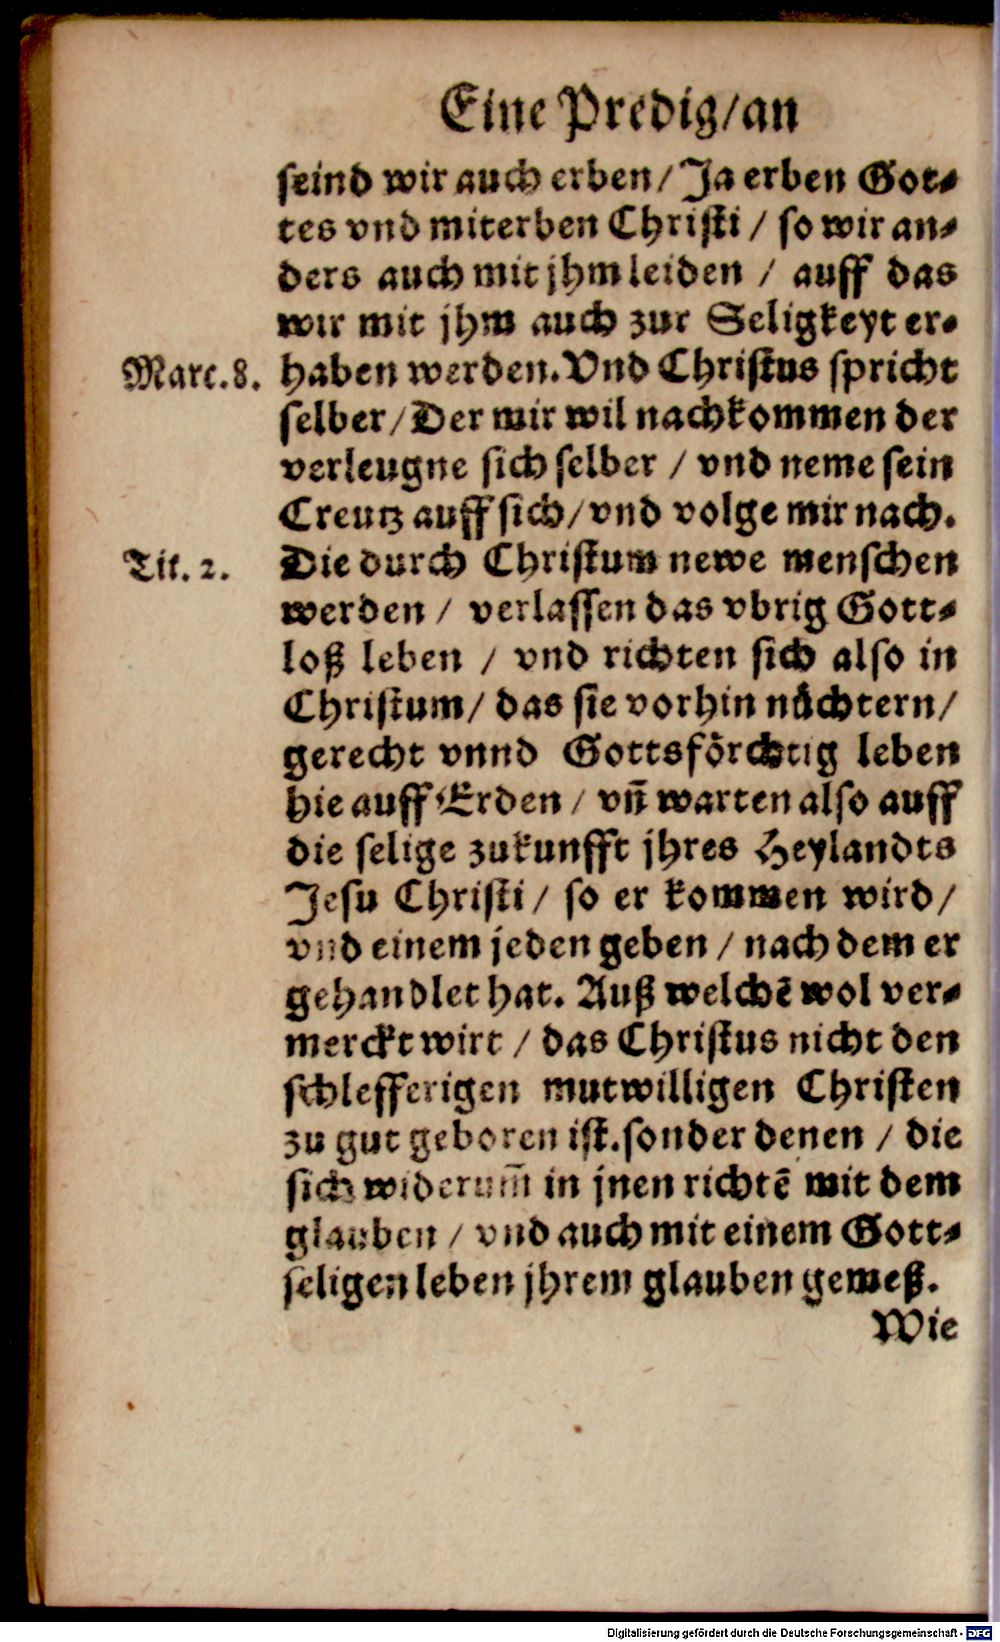 Eine Predig/an
seind wir auch erben/Ja erben Got⸗
tes vnd miterben Christi / so wir an⸗
ders auch mit jhm leiden / auff das
wir mit jhm auch zur Seligkeyt er⸗
Marc.8. haben werden. Vnd Christus spricht
selber/Der mir wil nachkommen der
verleugne sich selber / vnd neme sein
Creutz auff sich/vnd volge mir nach.
Tit. 2. Die durch Christum newe menschen
werden / verlassen das vbrig Gott⸗
loß leben / vnd richten sich also in
Christum/ das sie vorhin nůchtern/
gerecht vnnd Gottsförchtig leben
hie auff Erden / vñ warten also auff
die selige zukunfft jhres Heylandts
Jesu Christi / so er kommen wird/
vnd einem jeden geben / nach dem er
gehandlet hat. Auß welchē wol ver⸗
merckt wirt / das Christus nicht den
schlefferigen mutwilligen Christen
zu gut geboren ist. sonder denen / die
sich widerum̃ in jnen richtē mit dem
glauben / vnd auch mit einem Gott⸗
seligen leben jhrem glauben gemeß.
Wie
Digitalisierung gefördert durch die Deutsche Forschungsgemeinschaft - DFG